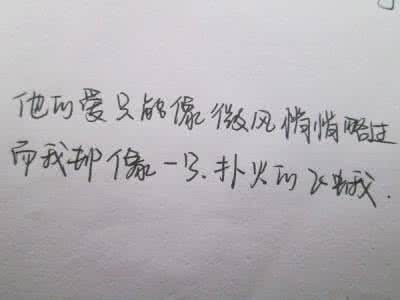 他的爱只能像微风悄悄略过
而我却像一只、扑火的飞蛾.